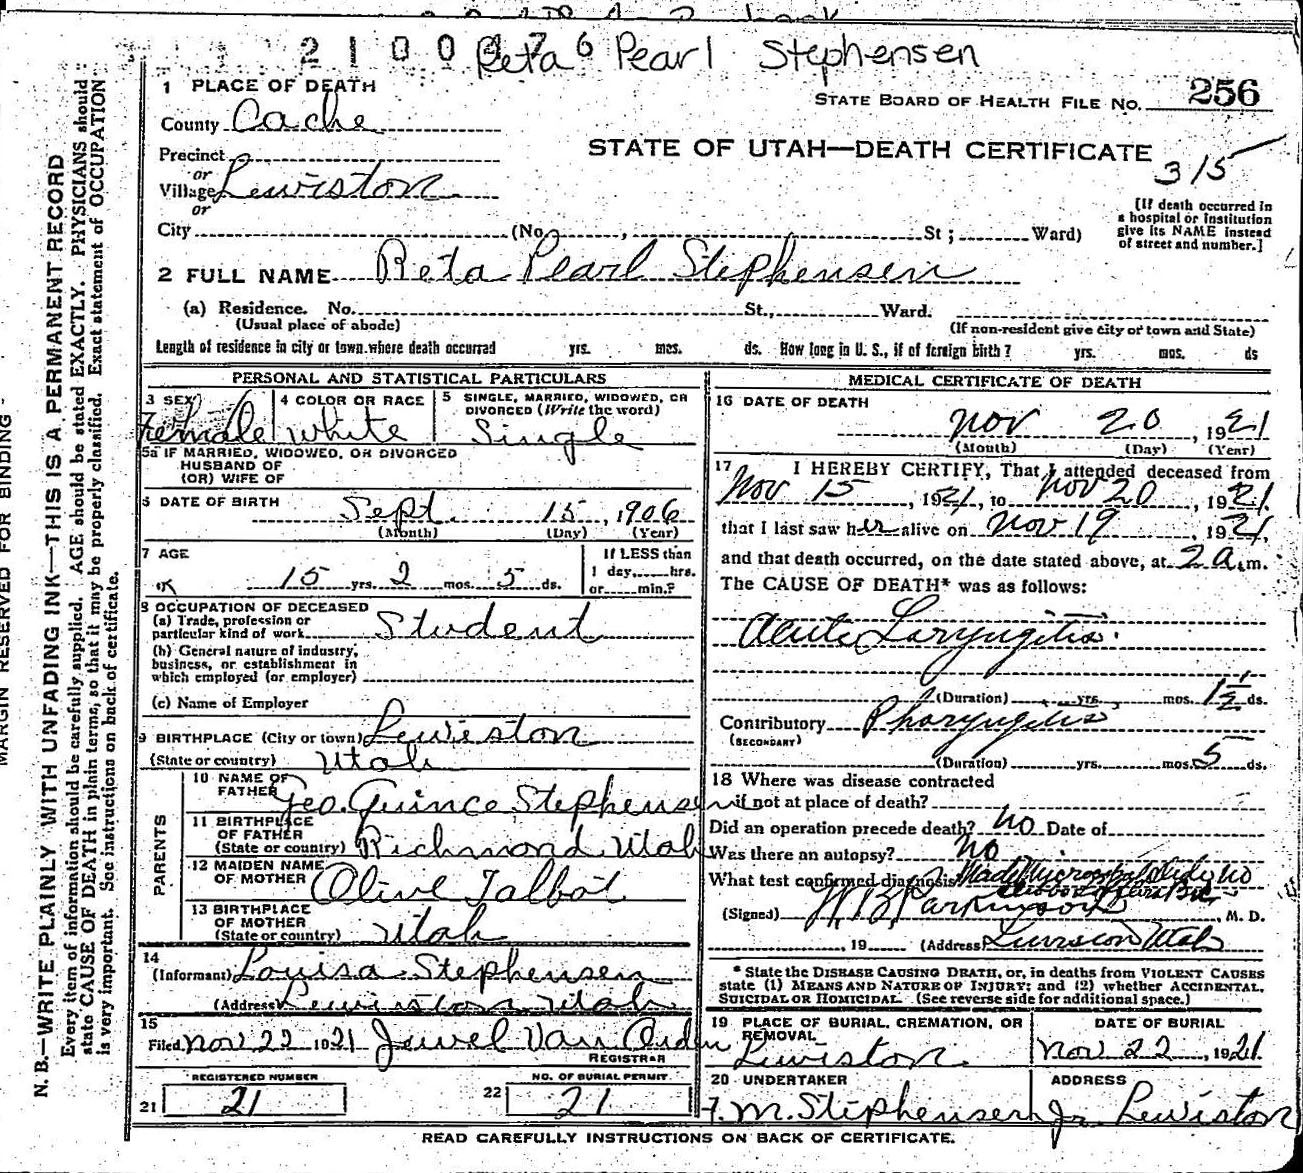 2 1 0 0 3 7 6 Reta Pearl Stephensen
1 PLACE OF DEATH
STATE BOARD OF HEALTH FILE NO. 256
County Cache
STATE OF UTAH—DEATH CERTIFICATE
315
Precinct
or
Village Lewiston
or
City (No. , St ; Ward)
[If death occurred in
a hospital or institution
give its NAME instead
of street and number.]
2 FULL NAME Reta Pearl Stephensen
(a) Residence. No. St., Ward.
(Usual place of abode) (If non-resident give city or town and State)
Length of residence in city or town where death occurred yrs. mos. ds. How long in U. S., if of foreign birth? yrs. mos. ds
PERSONAL AND STATISTICAL PARTICULARS
3 SEX Female
4 COLOR OR RACE white
5 SINGLE, MARRIED, WIDOWED, OR
DIVORCED (Write the word)
Single
5a IF MARRIED, WIDOWED, OR DIVORCED
HUSBAND OF
(OR) WIFE OF
6 DATE OF BIRTH Sept. 15, 1906
(Month) (Day) (Year)
7 AGE
15 yrs. 2 mos. 5 ds.
If LESS than
1 day, hrs.
or min.?
8 OCCUPATION OF DECEASED
(a) Trade, profession or
particular kind of work Student
(b) General nature of industry,
business, or establishment in
which employed (or employer)
(c) Name of Employer
9 BIRTHPLACE (City or town) Lewiston
(State or country) Utah
PARENTS
10 NAME OF
FATHER Geo. Quince Stephensen
11 BIRTHPLACE
OF FATHER
(State or country) Richmond Utah
12 MAIDEN NAME
OF MOTHER Olive Talbot
13 BIRTHPLACE
OF MOTHER
(State or country) Utah
14
(Informant) Louisa Stephensen
(Address) Lewiston Utah
15
Filed Nov 22 1921 Jewel Van Orden
REGISTRAR
REGISTERED NUMBER
21 21
NO. OF BURIAL PERMIT
22 21
MEDICAL CERTIFICATE OF DEATH
16 DATE OF DEATH
Nov 20, 1921
(Month) (Day) (Year)
17 I HEREBY CERTIFY, That I attended deceased from
Nov 15, 1921, to Nov 20, 1921.
that I last saw her alive on Nov 19, 1921,
and that death occurred, on the date stated above, at 2 a.m.
The CAUSE OF DEATH* was as follows:
Acute Laryngitis.
(Duration) yrs. mos. 1½ ds.
Contributory Pharyngitis
(SECONDARY)
(Duration) yrs. mos. 5 ds.
18 Where was disease contracted
if not at place of death?
Did an operation precede death? No Date of
Was there an autopsy? No
What test confirmed diagnosis
(Signed) W B Parkinson, M. D.
, 19 (Address) Lewiston Utah
* State the DISEASE CAUSING DEATH, or, in deaths from VIOLENT CAUSES
state (1) MEANS AND NATURE OF INJURY; and (2) whether ACCIDENTAL,
SUICIDAL OR HOMICIDAL. (See reverse side for additional space.)
19 PLACE OF BURIAL, CREMATION, OR
REMOVAL
Lewiston
DATE OF BURIAL
Nov 22, 1921
20 UNDERTAKER
M. Stephensen Jr.
ADDRESS
Lewiston
READ CAREFULLY INSTRUCTIONS ON BACK OF CERTIFICATE.
MARGIN RESERVED FOR BINDING -
N. B.—WRITE PLAINLY WITH UNFADING INK—THIS IS A PERMANENT RECORD
Every item of information should be carefully supplied. AGE should be stated EXACTLY. PHYSICIANS should
state CAUSE OF DEATH in plain terms, so that it may be properly classified. Exact statement of OCCUPATION
is very important. See instructions on back of certificate.